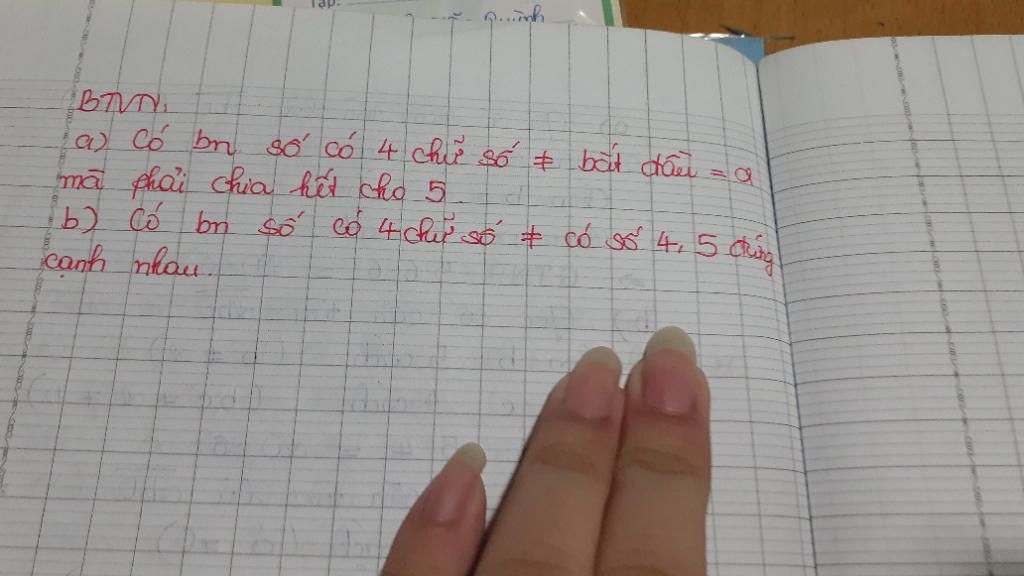 Tập:
BTVN.
a) Có bn số có 4 chữ số ≠ bắt đầu = 9
mà phải chia hết cho 5.
b) Có bn số có 4 chữ số ≠ có số 4, 5 đứng
cạnh nhau.